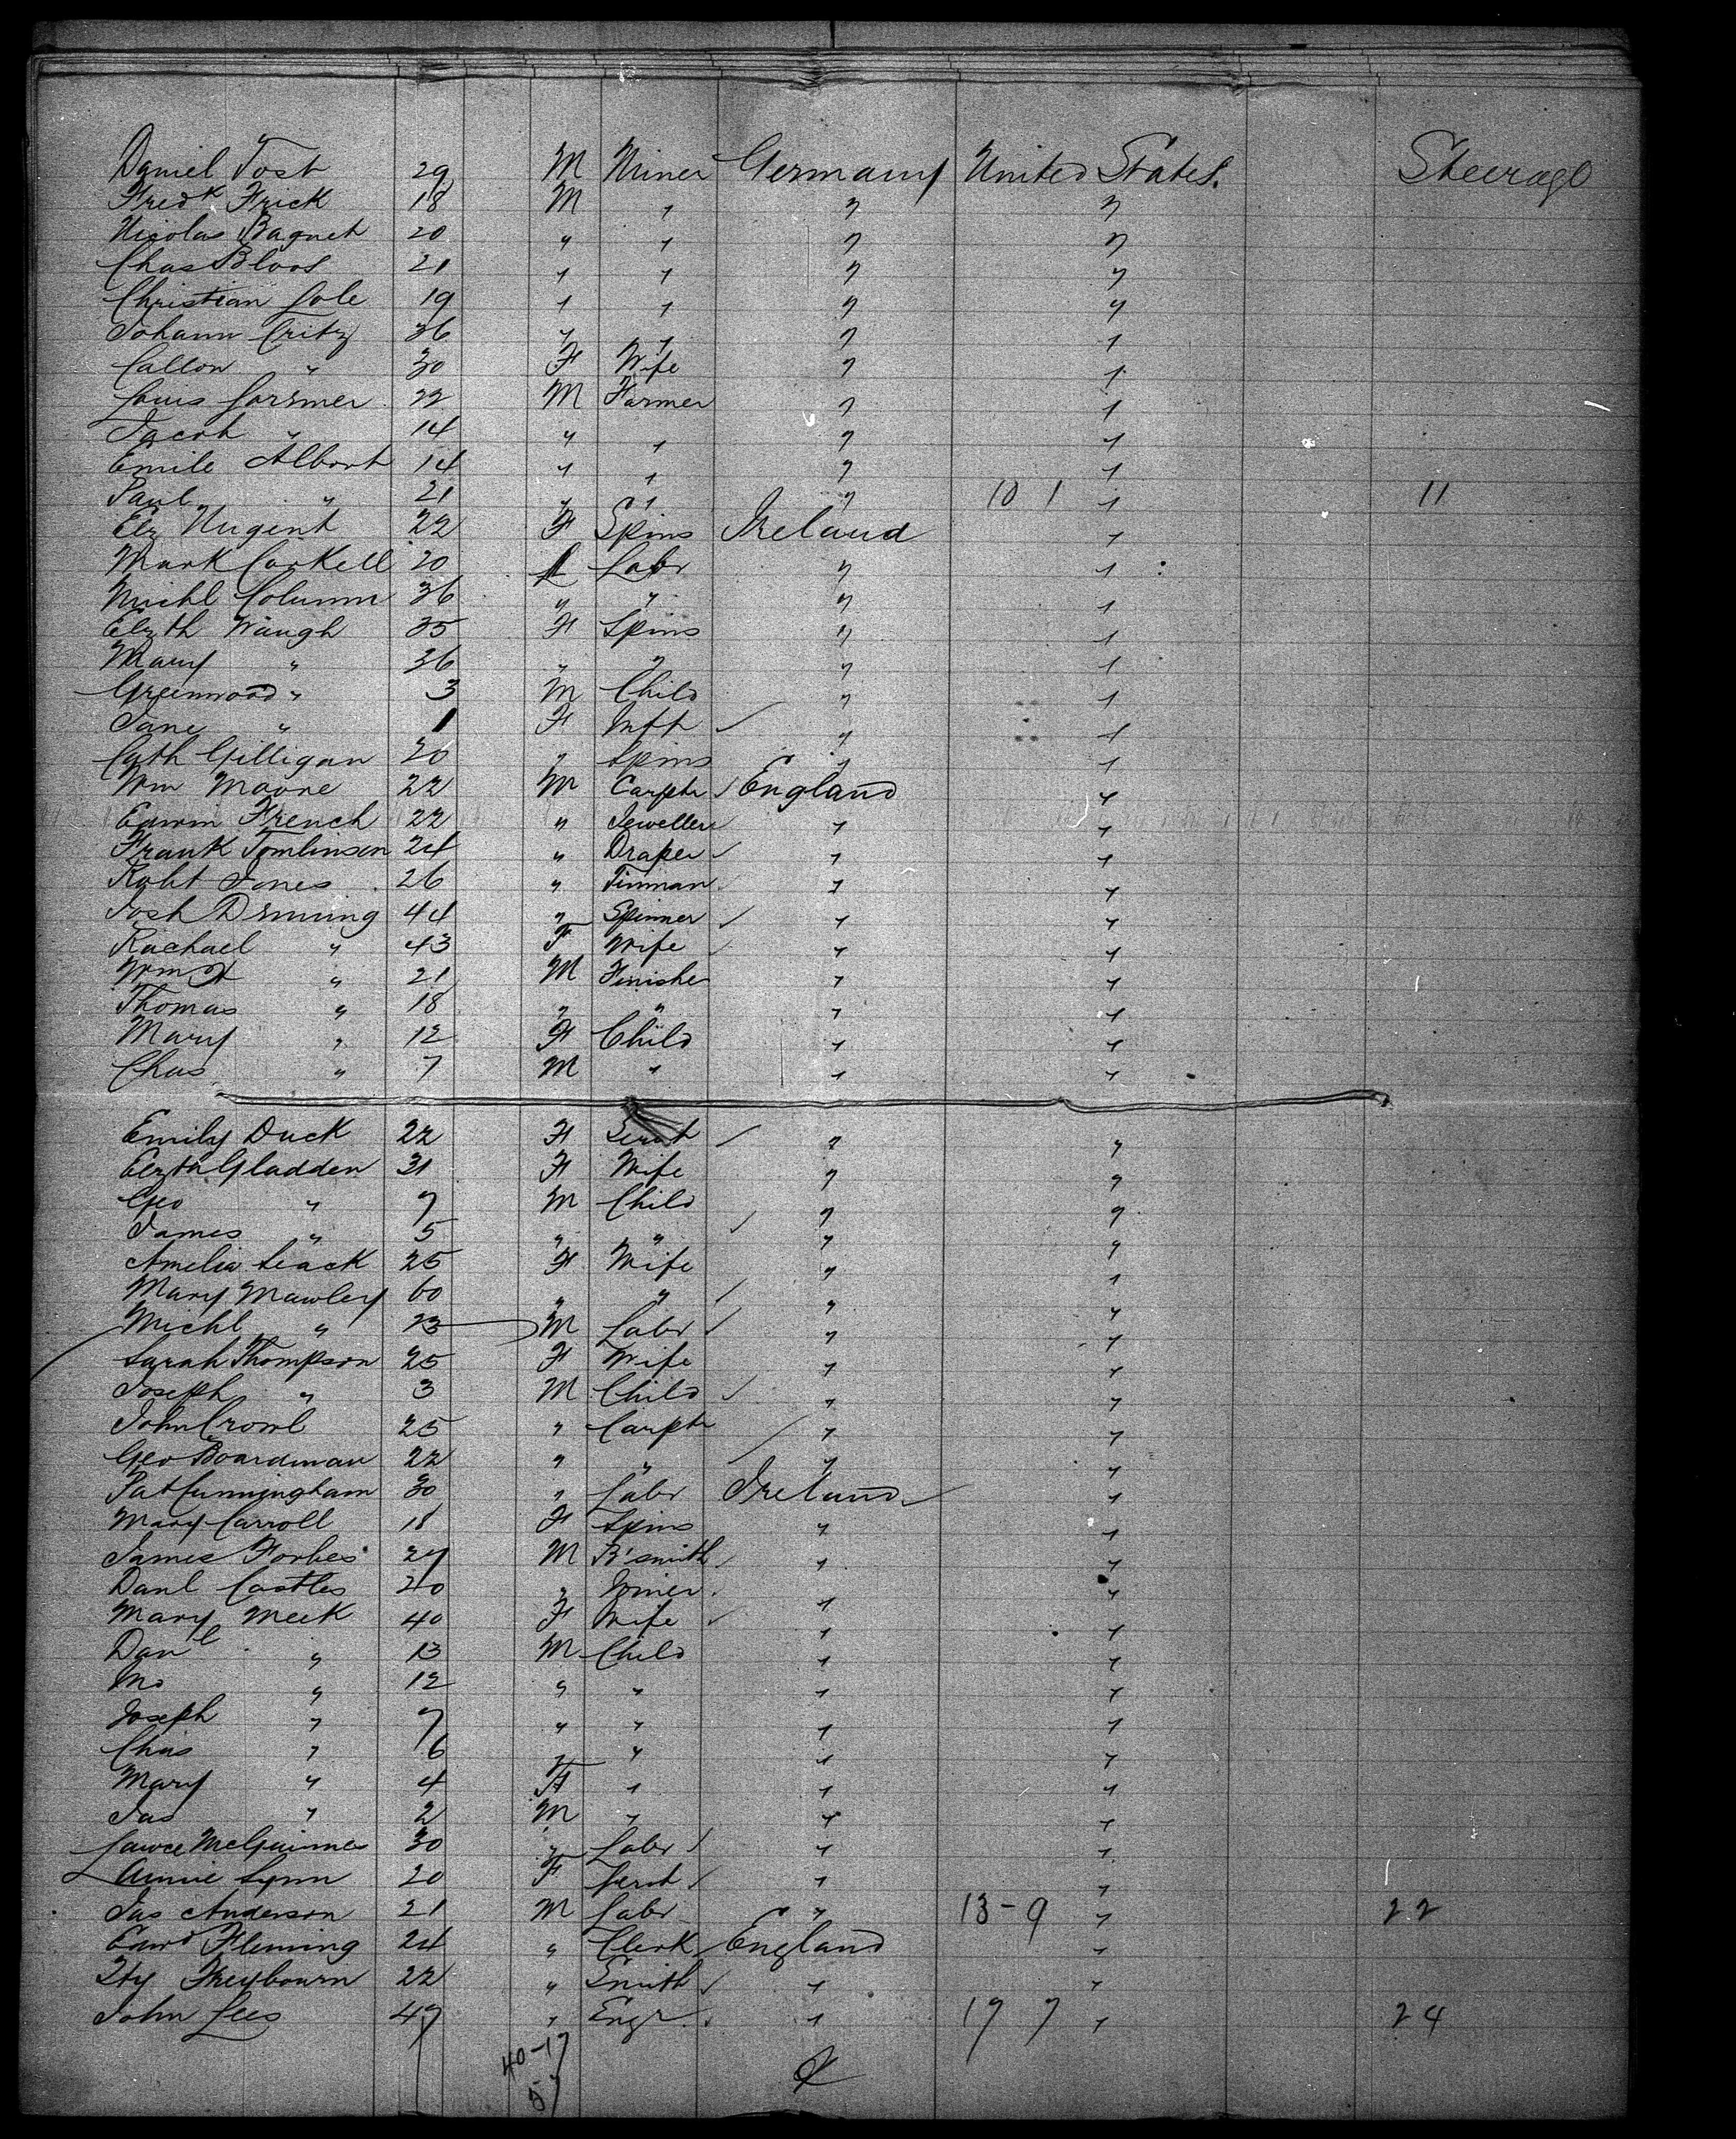 Daniel Tost 29 M Miner Germany United States. Steerage
Fredk Frick 18 M " " "
Nicolas Bagnet 20 " " " "
Chas Bloos 21 " " " "
Christian Lole 19 " " " "
Johann Critz 36 " " " "
Callon " 30 F Wife " "
Louis Gorsmer 22 M Farmer " "
Jacob " 14 " " " "
Emile Albert 14 " " " "
Paul " 21 " " " 10 1 " 11
Elz Nugent 22 F Spins Ireland "
Mark Corkell 20 Labr " "
Michl Column 36 " " " "
Elzth Waugh 35 F Spins " "
Mary " 36 " " " "
Greenwood " 3 M Child " "
Jane " 1 F Inft " "
Cath Gilligan 20 " Spins " "
Wm Moore 22 M Carptr England "
Edwin French 22 " Jeweller " "
Frank Tomlinson 24 " Draper " "
Robt Jones 26 " Tinman " "
Josh Dening 44 " Spinner " "
Rachael " 43 F Wife " "
Wm H " 21 M Finisher " "
Thomas " 18 " " " "
Mary " 12 F Child " "
Chas " 7 M " " "
Emily Duck 22 F Servt " "
Elzth Gladden 31 F Wife " "
Geo " 7 M Child " "
James " 5 " " " "
Amelia Leack 25 F Wife " "
Mary Mawley 60 " " " "
Michl " 23 M Labr " "
Sarah Thompson 25 F Wife " "
Joseph " 3 M Child " "
John Crowl 25 " Carptr " "
Geo Boardman 22 " " " "
Pat Cunningham 30 " Labr Ireland "
Mary Carroll 18 F Spins " "
James Forbes 27 M B'smith " "
Danl Castles 20 " Joiner " "
Mary Meek 40 F Wife " "
Danl " 13 M Child " "
" 12 " " " "
Joseph " 7 " " " "
Chas " 6 " " " "
Mary " 4 F " " "
Jas " 2 M " " "
Lawce McGuinnes 30 " Labr " "
Annie Lynn 20 F Servt " "
Jas Anderson 21 M Labr " 13-9 " 22
Edwd Fleming 24 " Clerk England "
Hy Freybourn 22 " Smith " "
John Lees 47 " Engr " 17 7 " 24
40-17
57